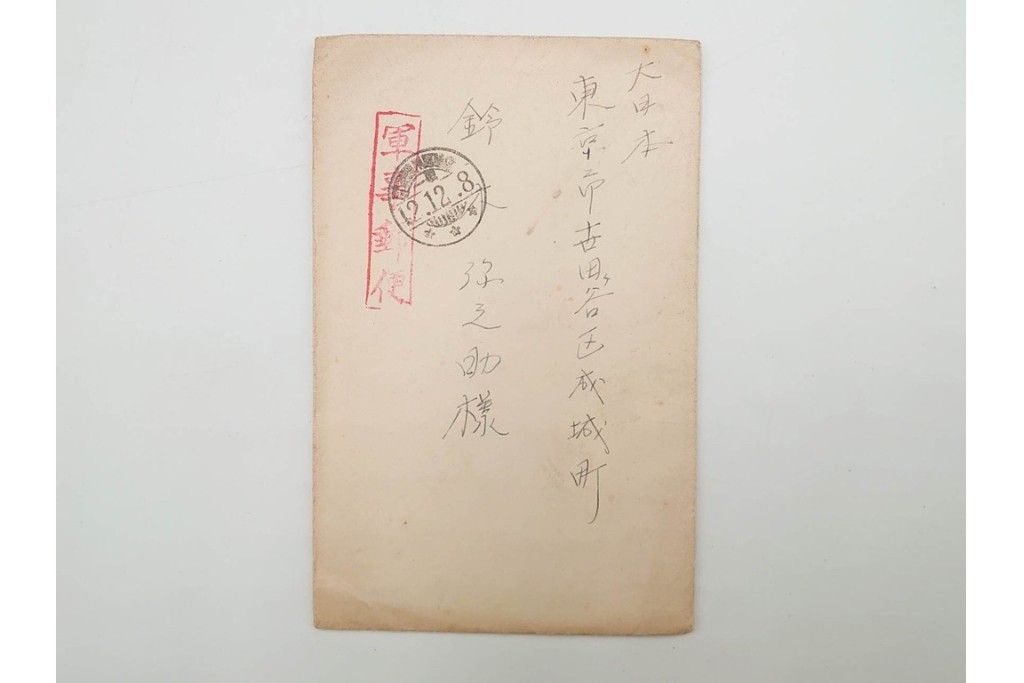 大日本
東京市世田谷区成城町
鈴木 弥之助様
軍事郵便
12.12.8